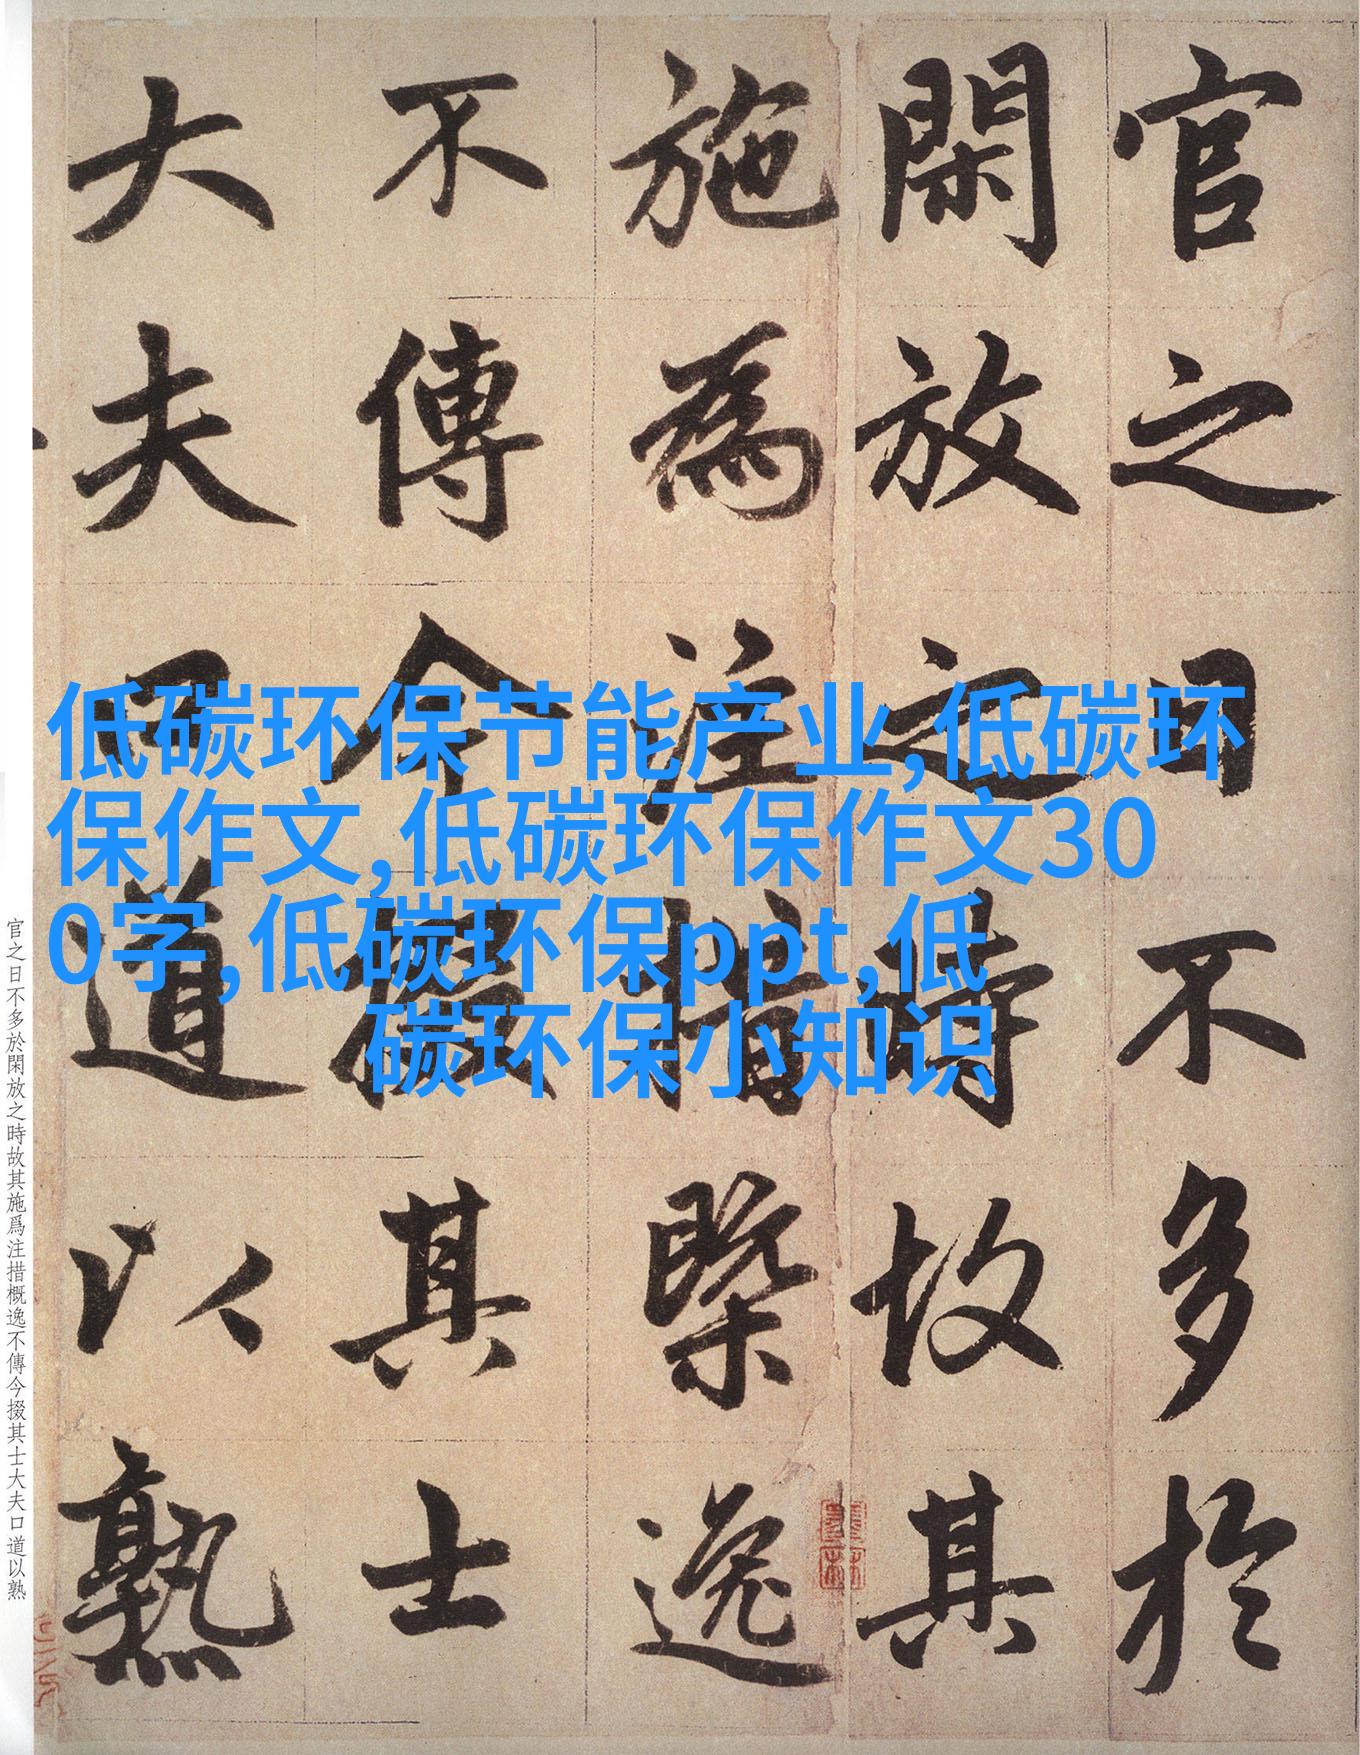 官之日不多於
閑放之時故其
施為注措槩逸
不傳今掇其士
大夫口道以熟
低碳环保节能产业,低碳环
保作文,低碳环保作文30
0字,低碳环保ppt,低
碳环保小知识
官之日不多於閑放之時故其施爲注措概逸不傳今掇其士大夫口道以熟